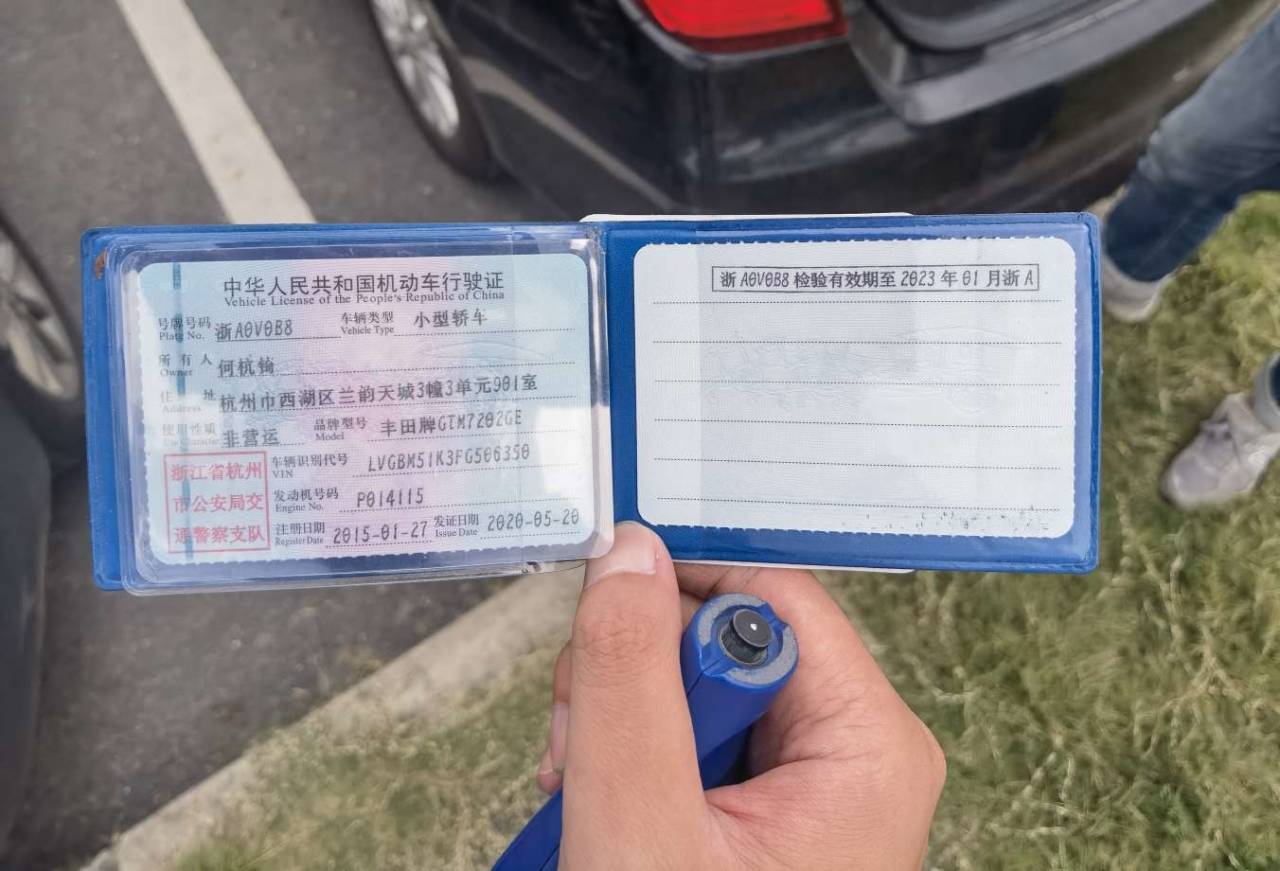 中华人民共和国机动车行驶证
Vehicle License of the People's Republic of China
号牌号码 浙A0V0B8 车辆类型 小型轿车
Plate No. Vehicle Type
所有人 何杭锜
Owner
住址 杭州市西湖区兰韵天城3幢3单元901室
Address
使用性质 非营运 品牌型号 丰田牌GTM7202GE
Use Character Model
车辆识别代号 LVGBM51K3FG506350
VIN
发动机号码 P014115
Engine No.
注册日期 2015-01-27 发证日期 2020-05-20
Register Date Issue Date
浙江省杭州
市公安局交
通警察支队
浙A0V0B8检验有效期至2023年01月浙A